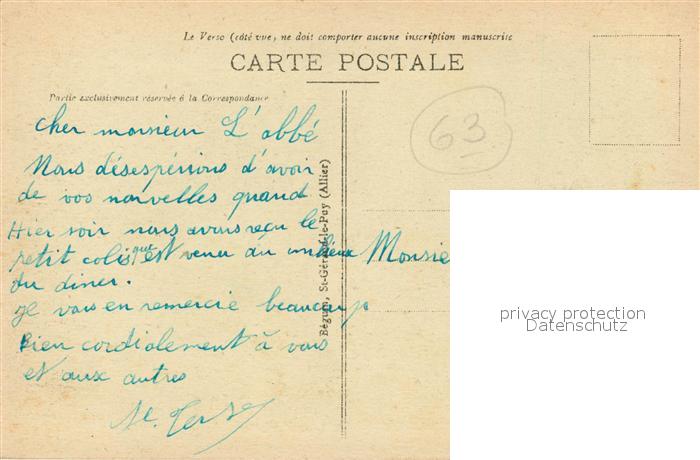 Le Verso (côté vue) ne doit comporter aucune inscription manuscrite
CARTE POSTALE
Partie exclusivement réservée à la Correspondance
63
Cher monsieur L'abbé
Nous désespérions d'avoir
de vos nouvelles quand
Hier soir nous avons reçu le
petit colis qui est venu au milieu
du diner.
Je vous en remercie beaucoup
Bien cordialement à vous
et aux autres
Monsie
Bégum, St-Gérand-le-Puy (Allier)
privacy protection
Datenschutz